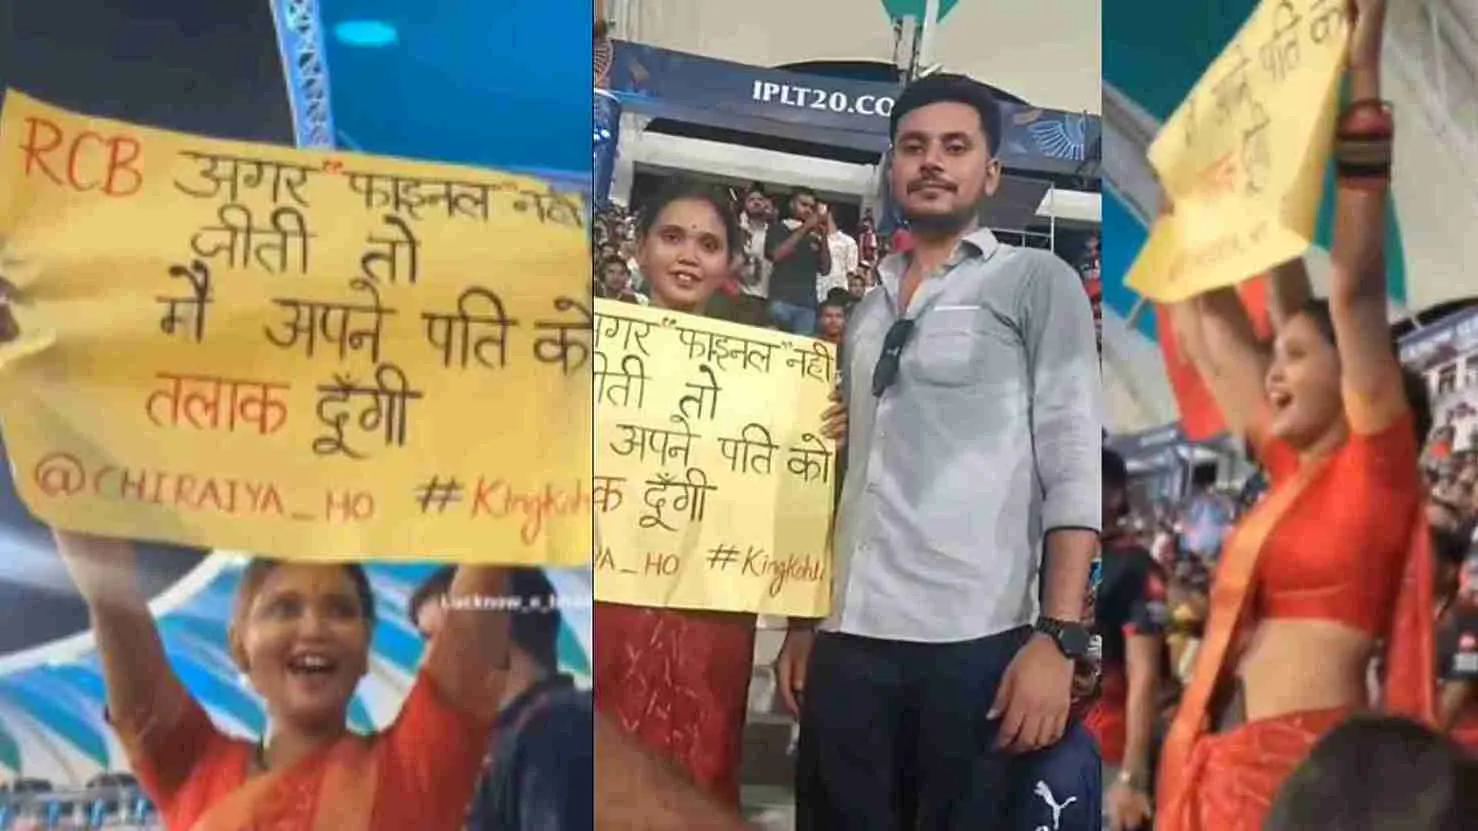 RCB अगर "फाइनल" नही
जीती तो
मै अपने पति को
तलाक दूँगी
@CHIRAIYA_HO #KingKoh
Lucknow_e_
IPLT20.CO
गर "फाइनल" नही
ीती तो
अपने पति को
क दूँगी
YA_HO #KingKohli
अपने पति को
दूँगी